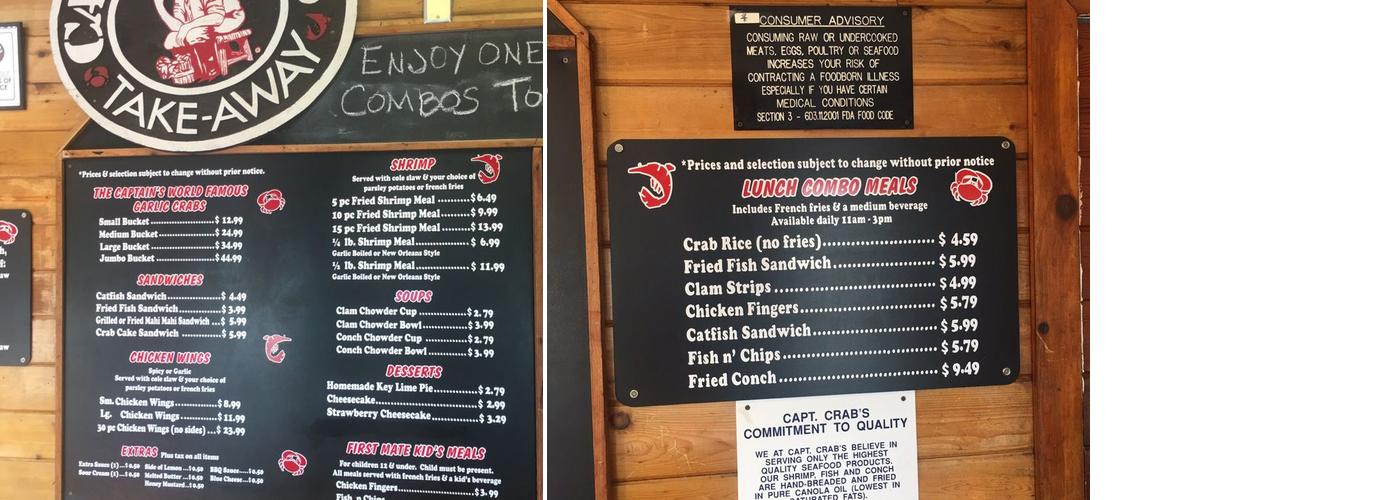 CA
TAKE-AWAY
ENJOY ONE
COMBOS TO
*Prices & selection subject to change without prior notice.
THE CAPTAIN'S WORLD FAMOUS
GARLIC CRABS
Small Bucket ........ $ 12.99
Medium Bucket ........ $ 24.99
Large Bucket ........ $34.99
Jumbo Bucket ........ $44.99
SANDWICHES
Catfish Sandwich ........ $ 4.49
Fried Fish Sandwich ........ $ 3.99
Grilled or Fried Mahi Mahi Sandwich ... $ 5.99
Crab Cake Sandwich ........ $ 5.99
CHICKEN WINGS
Spicy or Garlic
Served with cole slaw & your choice of
parsley potatoes or french fries
Sm. Chicken Wings ........ $ 8.99
Lg. Chicken Wings ........ $ 11.99
30 pc Chicken Wings (no sides) ... $ 23.99
EXTRAS Plus tax on all items
Extra Sauce (1) ... $0.50
Sour Cream (1) ... $0.50
Side of Lemon ... $0.50
Melted Butter ... $0.50
Honey Mustard ... $0.50
BBQ Sauce ..... $0.50
Blue Cheese ... $0.50
SHRIMP
Served with cole slaw & your choice of
parsley potatoes or french fries
5 pc Fried Shrimp Meal ........ $6.49
10 pc Fried Shrimp Meal ........ $ 9.99
15 pc Fried Shrimp Meal ........ $ 13.99
¼ lb. Shrimp Meal ........ $ 6.99
Garlic Boiled or New Orleans Style
½ lb. Shrimp Meal ........ $ 11.99
Garlic Boiled or New Orleans Style
SOUPS
Clam Chowder Cup ........ $ 2.79
Clam Chowder Bowl ........ $ 3.99
Conch Chowder Cup ........ $ 2.79
Conch Chowder Bowl ........ $ 3.99
DESSERTS
Homemade Key Lime Pie ........ $ 2.79
Cheesecake ........ $ 2.99
Strawberry Cheesecake ........ $ 3.29
FIRST MATE KID'S MEALS
For children 11 & under. Child must be present.
All meals served with french fries & a kid's beverage
Chicken Fingers ........ $ 3.99
Fish n Chips
CONSUMER ADVISORY
CONSUMING RAW OR UNDERCOOKED
MEATS, EGGS, POULTRY OR SEAFOOD
INCREASES YOUR RISK OF
CONTRACTING A FOODBORN ILLNESS
ESPECIALLY IF YOU HAVE CERTAIN
MEDICAL CONDITIONS
SECTION 3 - 603.11,2001 FDA FOOD CODE
*Prices and selection subject to change without prior notice
LUNCH COMBO MEALS
Includes French fries & a medium beverage
Available daily 11am - 3pm
Crab Rice (no fries) ........ $ 4.59
Fried Fish Sandwich ........ $ 5.99
Clam Strips ........ $ 4.99
Chicken Fingers ........ $ 5.79
Catfish Sandwich ........ $ 5.99
Fish n' Chips ........ $ 5.79
Fried Conch ........ $ 9.49
CAPT. CRAB'S
COMMITMENT TO QUALITY
WE AT CAPT. CRAB'S BELIEVE IN
SERVING ONLY THE HIGHEST
QUALITY SEAFOOD PRODUCTS.
OUR SHRIMP, FISH AND CONCH
ARE HAND-BREADED AND FRIED
IN PURE CANOLA OIL (LOWEST IN
SATURATED FATS).